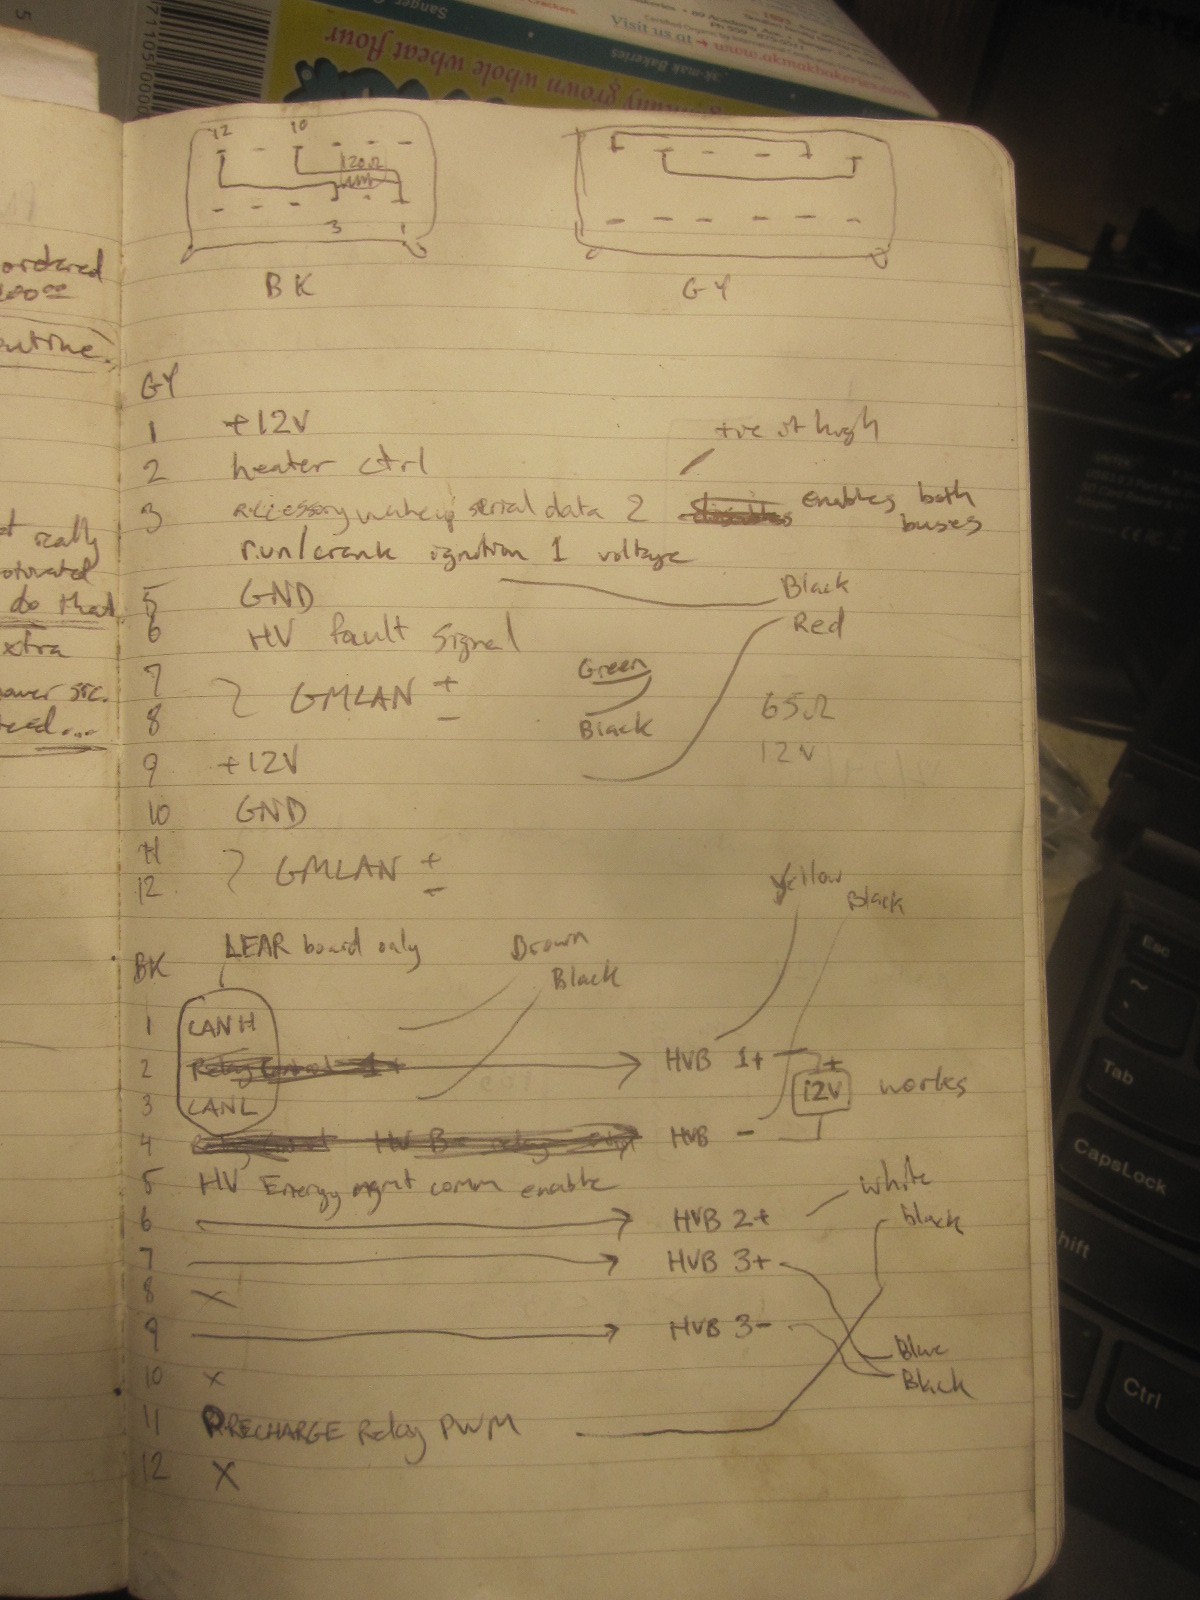 Sanger
Crackers.
Visit us at → www.akmakbakeries.com
ak-mak Bakeries
grown whole wheat flour
5
71105
12 10
120Ω
3 1
BK
GY
ordered
GY
1 +12V
+ve it high
2 heater ctrl
3 accessory wakeup serial data 2 enables both
buses
run/crank ignition 1 voltage
really
5 GND Black
do that
6 HV fault signal Red
xtra
7 GMLAN + Green
8 - Black 65Ω
9 +12V 12V
10 GND
11 GMLAN +
12 -
Yellow Black
BK LEAR board only Brown
Black
1 CANH
2 Relay Control 1+ HVB 1+ +
12V works
3 CANL
4 HV B- relay HVB -
5 HV Energy mgmt comm enable
white
6 HVB 2+ black
7 HVB 3+
8 X
9 HVB 3-
Blue
10 X Black
11 PRECHARGE Relay PWM
12 X
Esc
~
Tab
CapsLock
hift
Ctrl